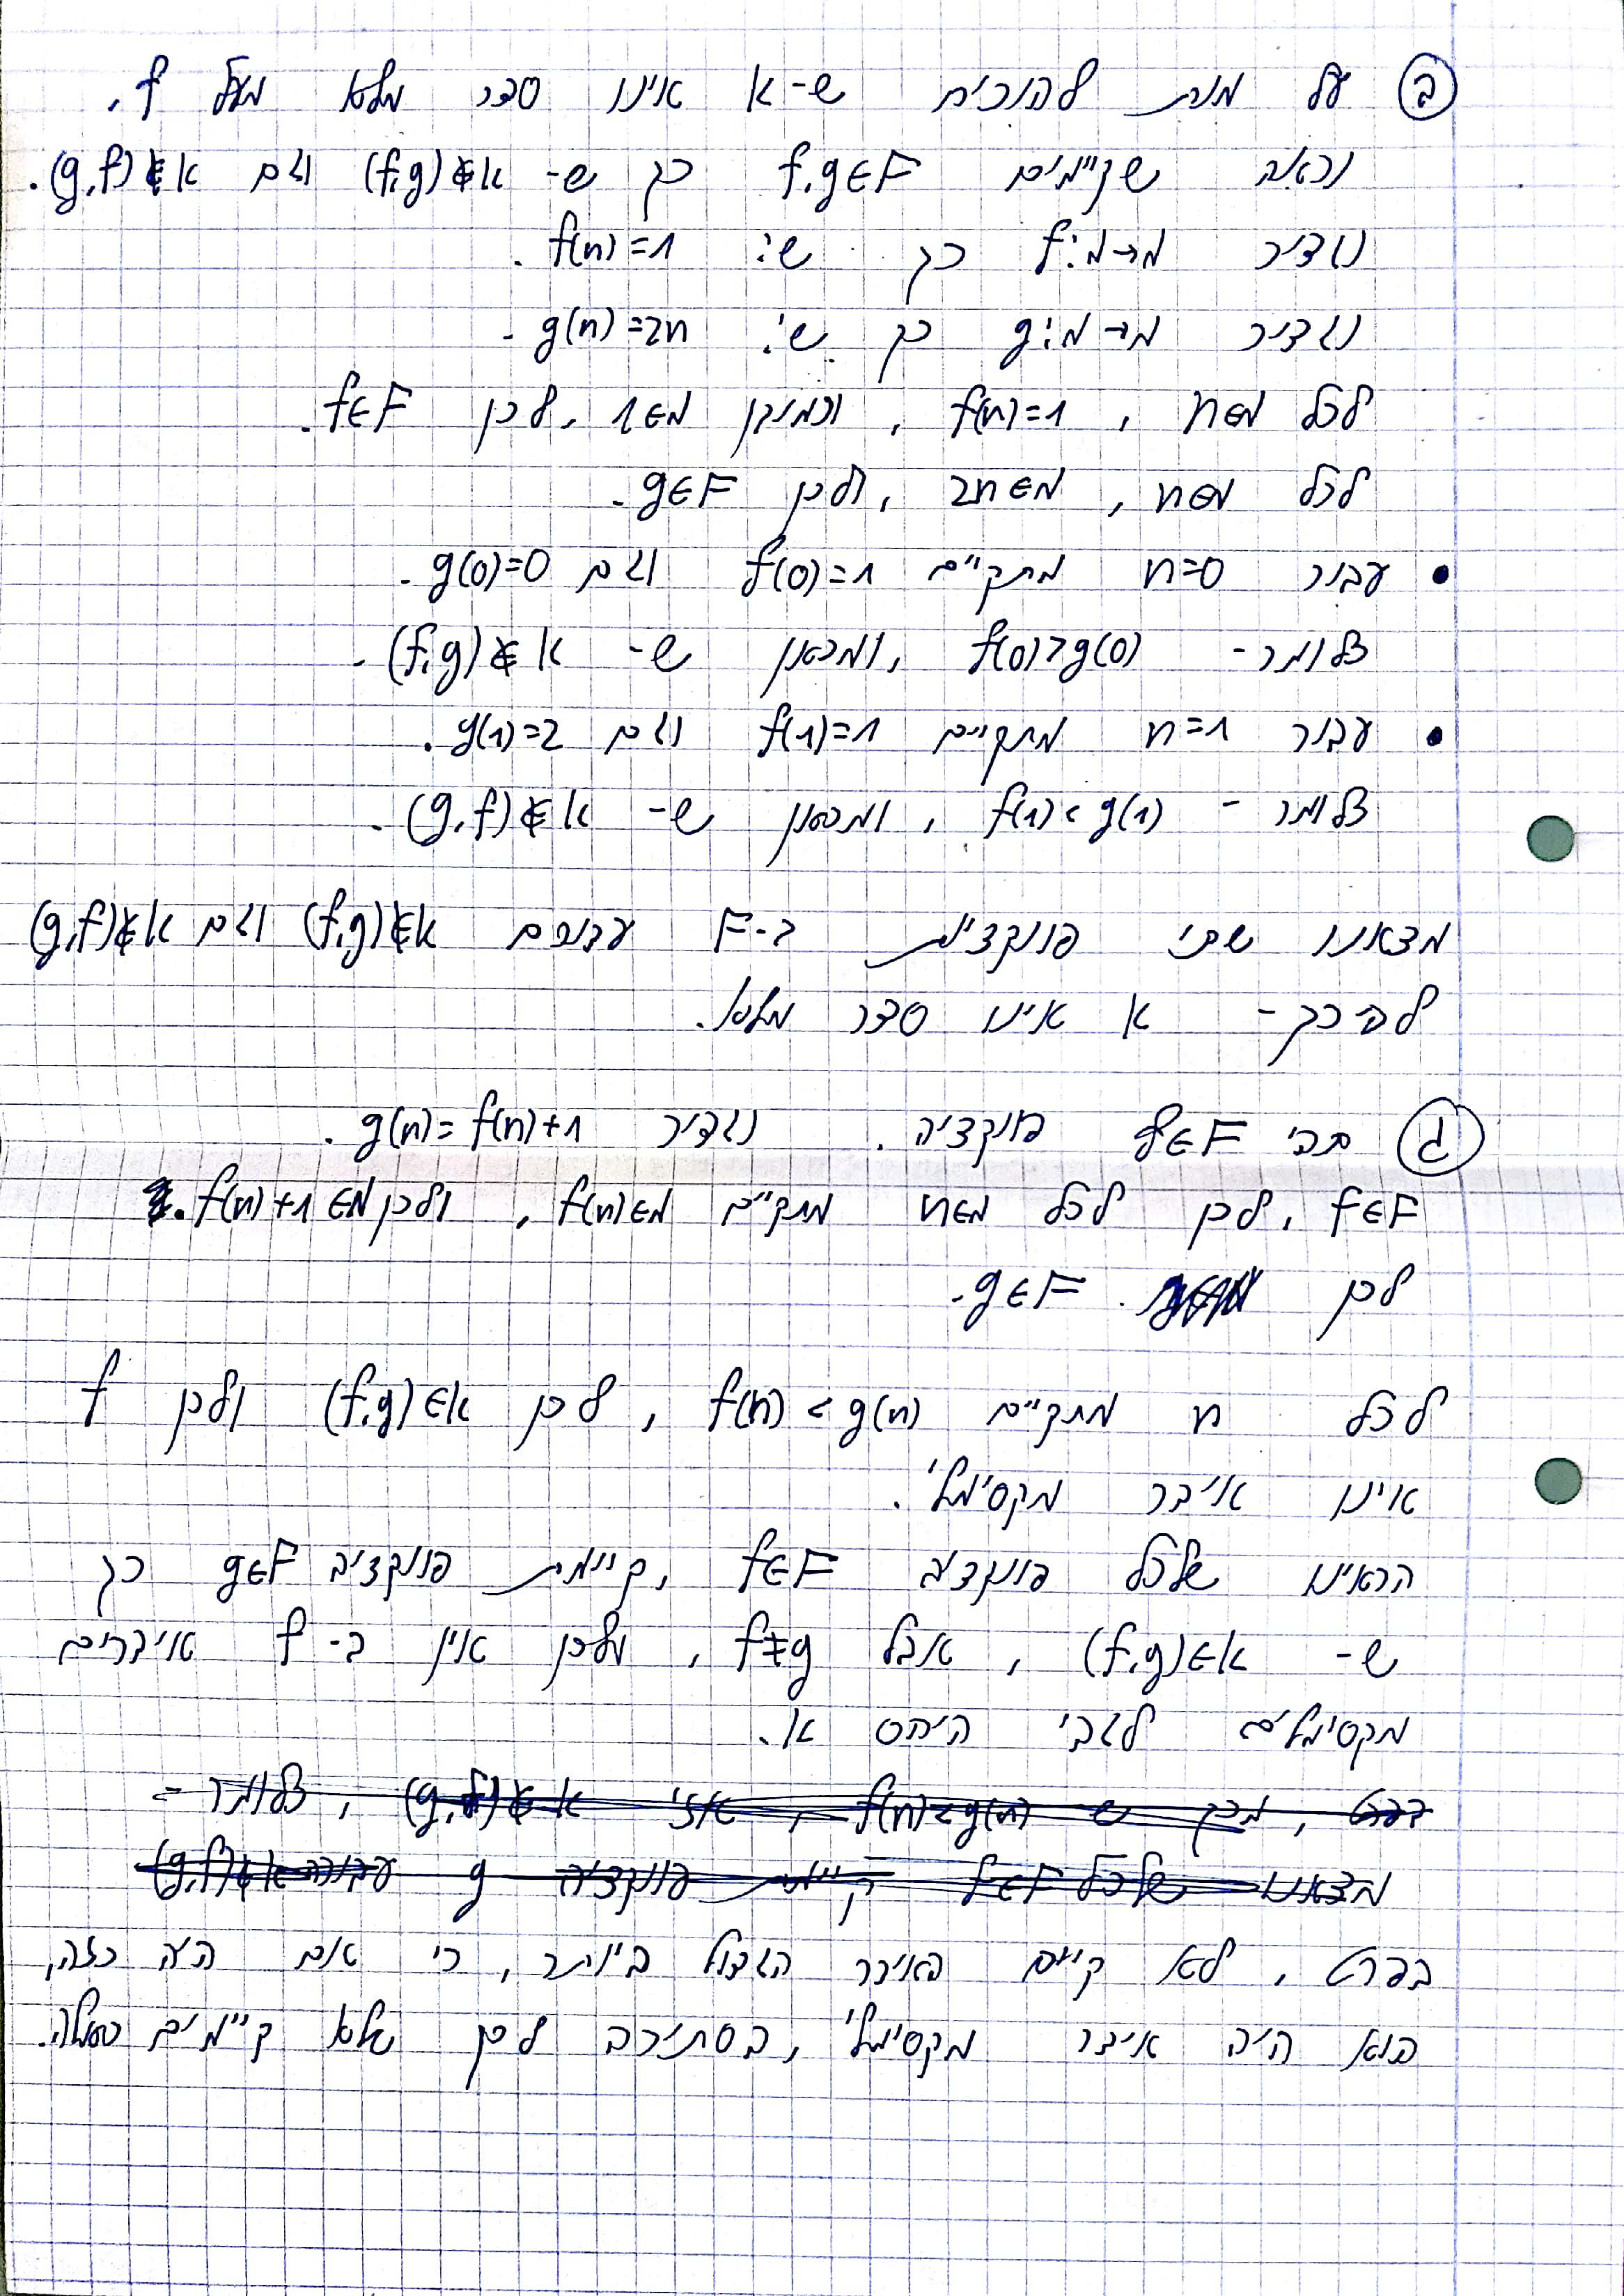 ב) על מנת להוכיח ש-K אינו סדר מלא מעל F.
נראה שקיימים f,g∈F כך ש- (f,g)∉K וגם (g,f)∉K.
נגדיר f:ℕ→ℕ כך ש: f(n)=1.
נגדיר g:ℕ→ℕ כך ש: g(n)=2n.
לכל n∈ℕ, f(n)=1, וכמובן 1∈ℕ, לכן f∈F.
לכל n∈ℕ, 2n∈ℕ, ולכן g∈F.
• עבור n=0 מתקיים f(0)=1 וגם g(0)=0.
כלומר- f(0)>g(0), ומכאן ש- (f,g)∉K.
• עבור n=1 מתקיים f(1)=1 וגם g(1)=2.
כלומר- f(1)<g(1), ומכאן ש- (g,f)∉K.
מצאנו שתי פונקציות ב-F עבורם (f,g)∉K וגם (g,f)∉K
לפיכך- K אינו סדר מלא.
ג) תהי f∈F פונקציה. נגדיר g(n)=f(n)+1.
f∈F, לכן לכל n∈ℕ מתקיים f(n)∈ℕ, ולכן f(n)+1∈ℕ.
לכן g∈F.
לכל n מתקיים f(n)<g(n), לכן (f,g)∈K ולכן f
אינו איבר מקסימלי.
הראינו שלכל פונקציה f∈F, קיימת פונקציה g∈F כך
ש- (f,g)∈K, אבל f≠g, ולכן אין ב-F איברים
מקסימלים לגבי היחס K.
בפרט, מכך ש f(n)<g(n), אזי (g,f)∉K, כלומר-
מצאנו שלכל f∈F קיימת פונקציה g עבורה (g,f)∉K
בפרט, לא קיים האיבר הגדול ביותר, כי אם היה כזה,
הוא היה איבר מקסימלי, בסתירה לכך שלא קיימים כאלה.